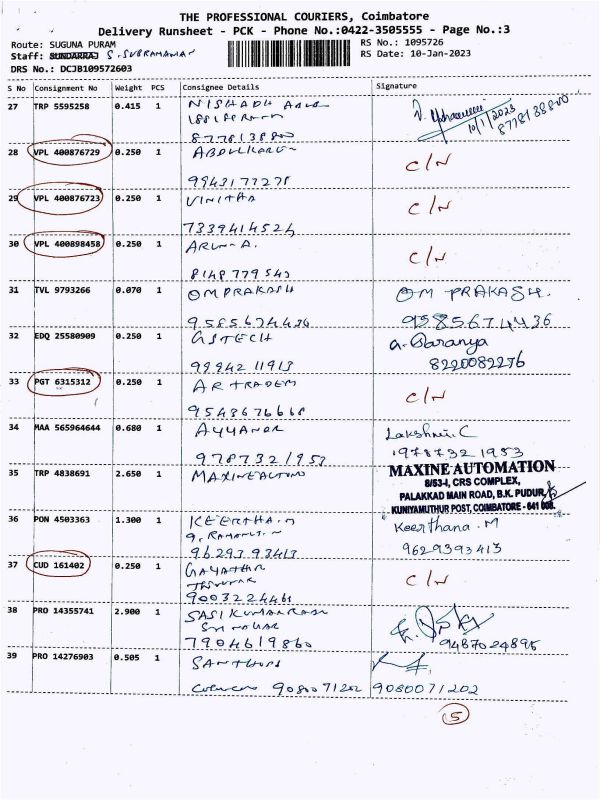 THE PROFESSIONAL COURIERS, Coimbatore
Delivery Runsheet - PCK - Phone No.:0422-3505555 - Page No.:3
Route: SUGUNA PURAM
RS No.: 1095726
Staff: SUNDARRAJ S. SUBRAMANIAN
RS Date: 10-Jan-2023
DRS No.: DCJB109572603
S No Consignment No Weight PCS Consignee Details Signature
27 TRP 5595258 0.415 1 NISHADH
10/1/2023
8778138800
8778138800
28 VPL 400876729 0.250 1 ABDULKARUN
C/N
9943177278
29 VPL 400876723 0.250 1 VINITHA
C/N
7339414524
30 VPL 400898458 0.250 1 ARUN-A.
C/N
8148779543
31 TVL 9793266 0.070 1 OM PRAKASH OM PRAKASH.
9585674436 9585674436
32 EDQ 25580909 0.250 1 GSTECH a. Saranya
99942 11913 8220082276
33 PGT 6315312 0.250 1 AR TRADERS
C/N
9543676668
34 MAA 565964644 0.680 1 AYYANAR Lakshmi. C
9787321953 1978732 1953
35 TRP 4838691 2.650 1 MAXINE AUTOM
MAXINE AUTOMATION
8/53-I, CRS COMPLEX,
PALAKKAD MAIN ROAD, B.K. PUDUR,
KUNIYAMUTHUR POST, COIMBATORE - 641 008.
36 PON 4503363 1.300 1 KEERTHA.M Keerthana. M
9629393413 9629393413
37 CUD 161402 0.250 1 GAYATHRI
C/N
9003224461
38 PRO 14355741 2.900 1 SASIKUMAR
7904619860 9487024895
39 PRO 14276903 0.505 1 SANTHOSH
9080071202 9080071202
5